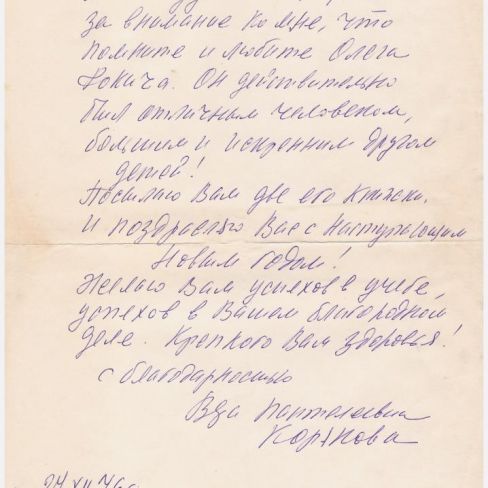 за внимание ко мне, что
помните и любите Олега
Фокича. Он действительно
был отличным человеком,
большим и искренним другом
детей!
Посылаю Вам две его книжки.
И поздравляю Вас с Наступающим
Новым годом!
Желаю Вам успехов в учебе,
успехов в Вашем благородном
деле. Крепкого Вам здоровья!
с благодарностью
Пантелеевна
Корякова
24 XII